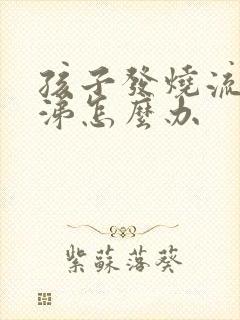 孩子發燒流
涕怎麼办
紫蘇落葵